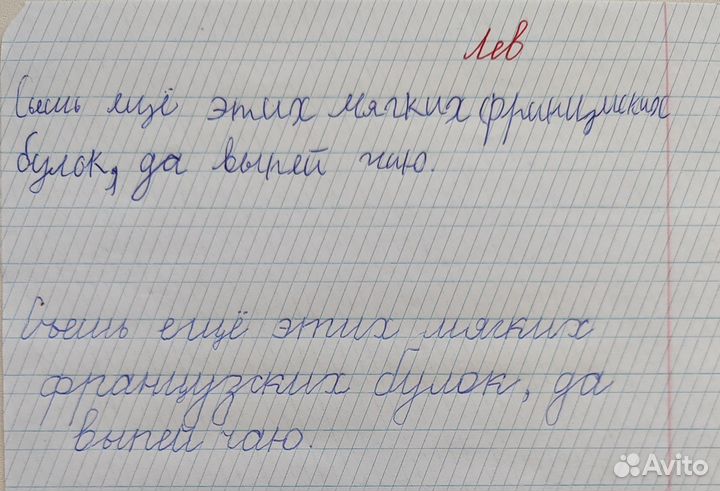 Лев
Съешь ещё этих мягких французских
булок, да выпей чаю.
Съешь ещё этих мягких
французских булок, да
выпей чаю.
Avito